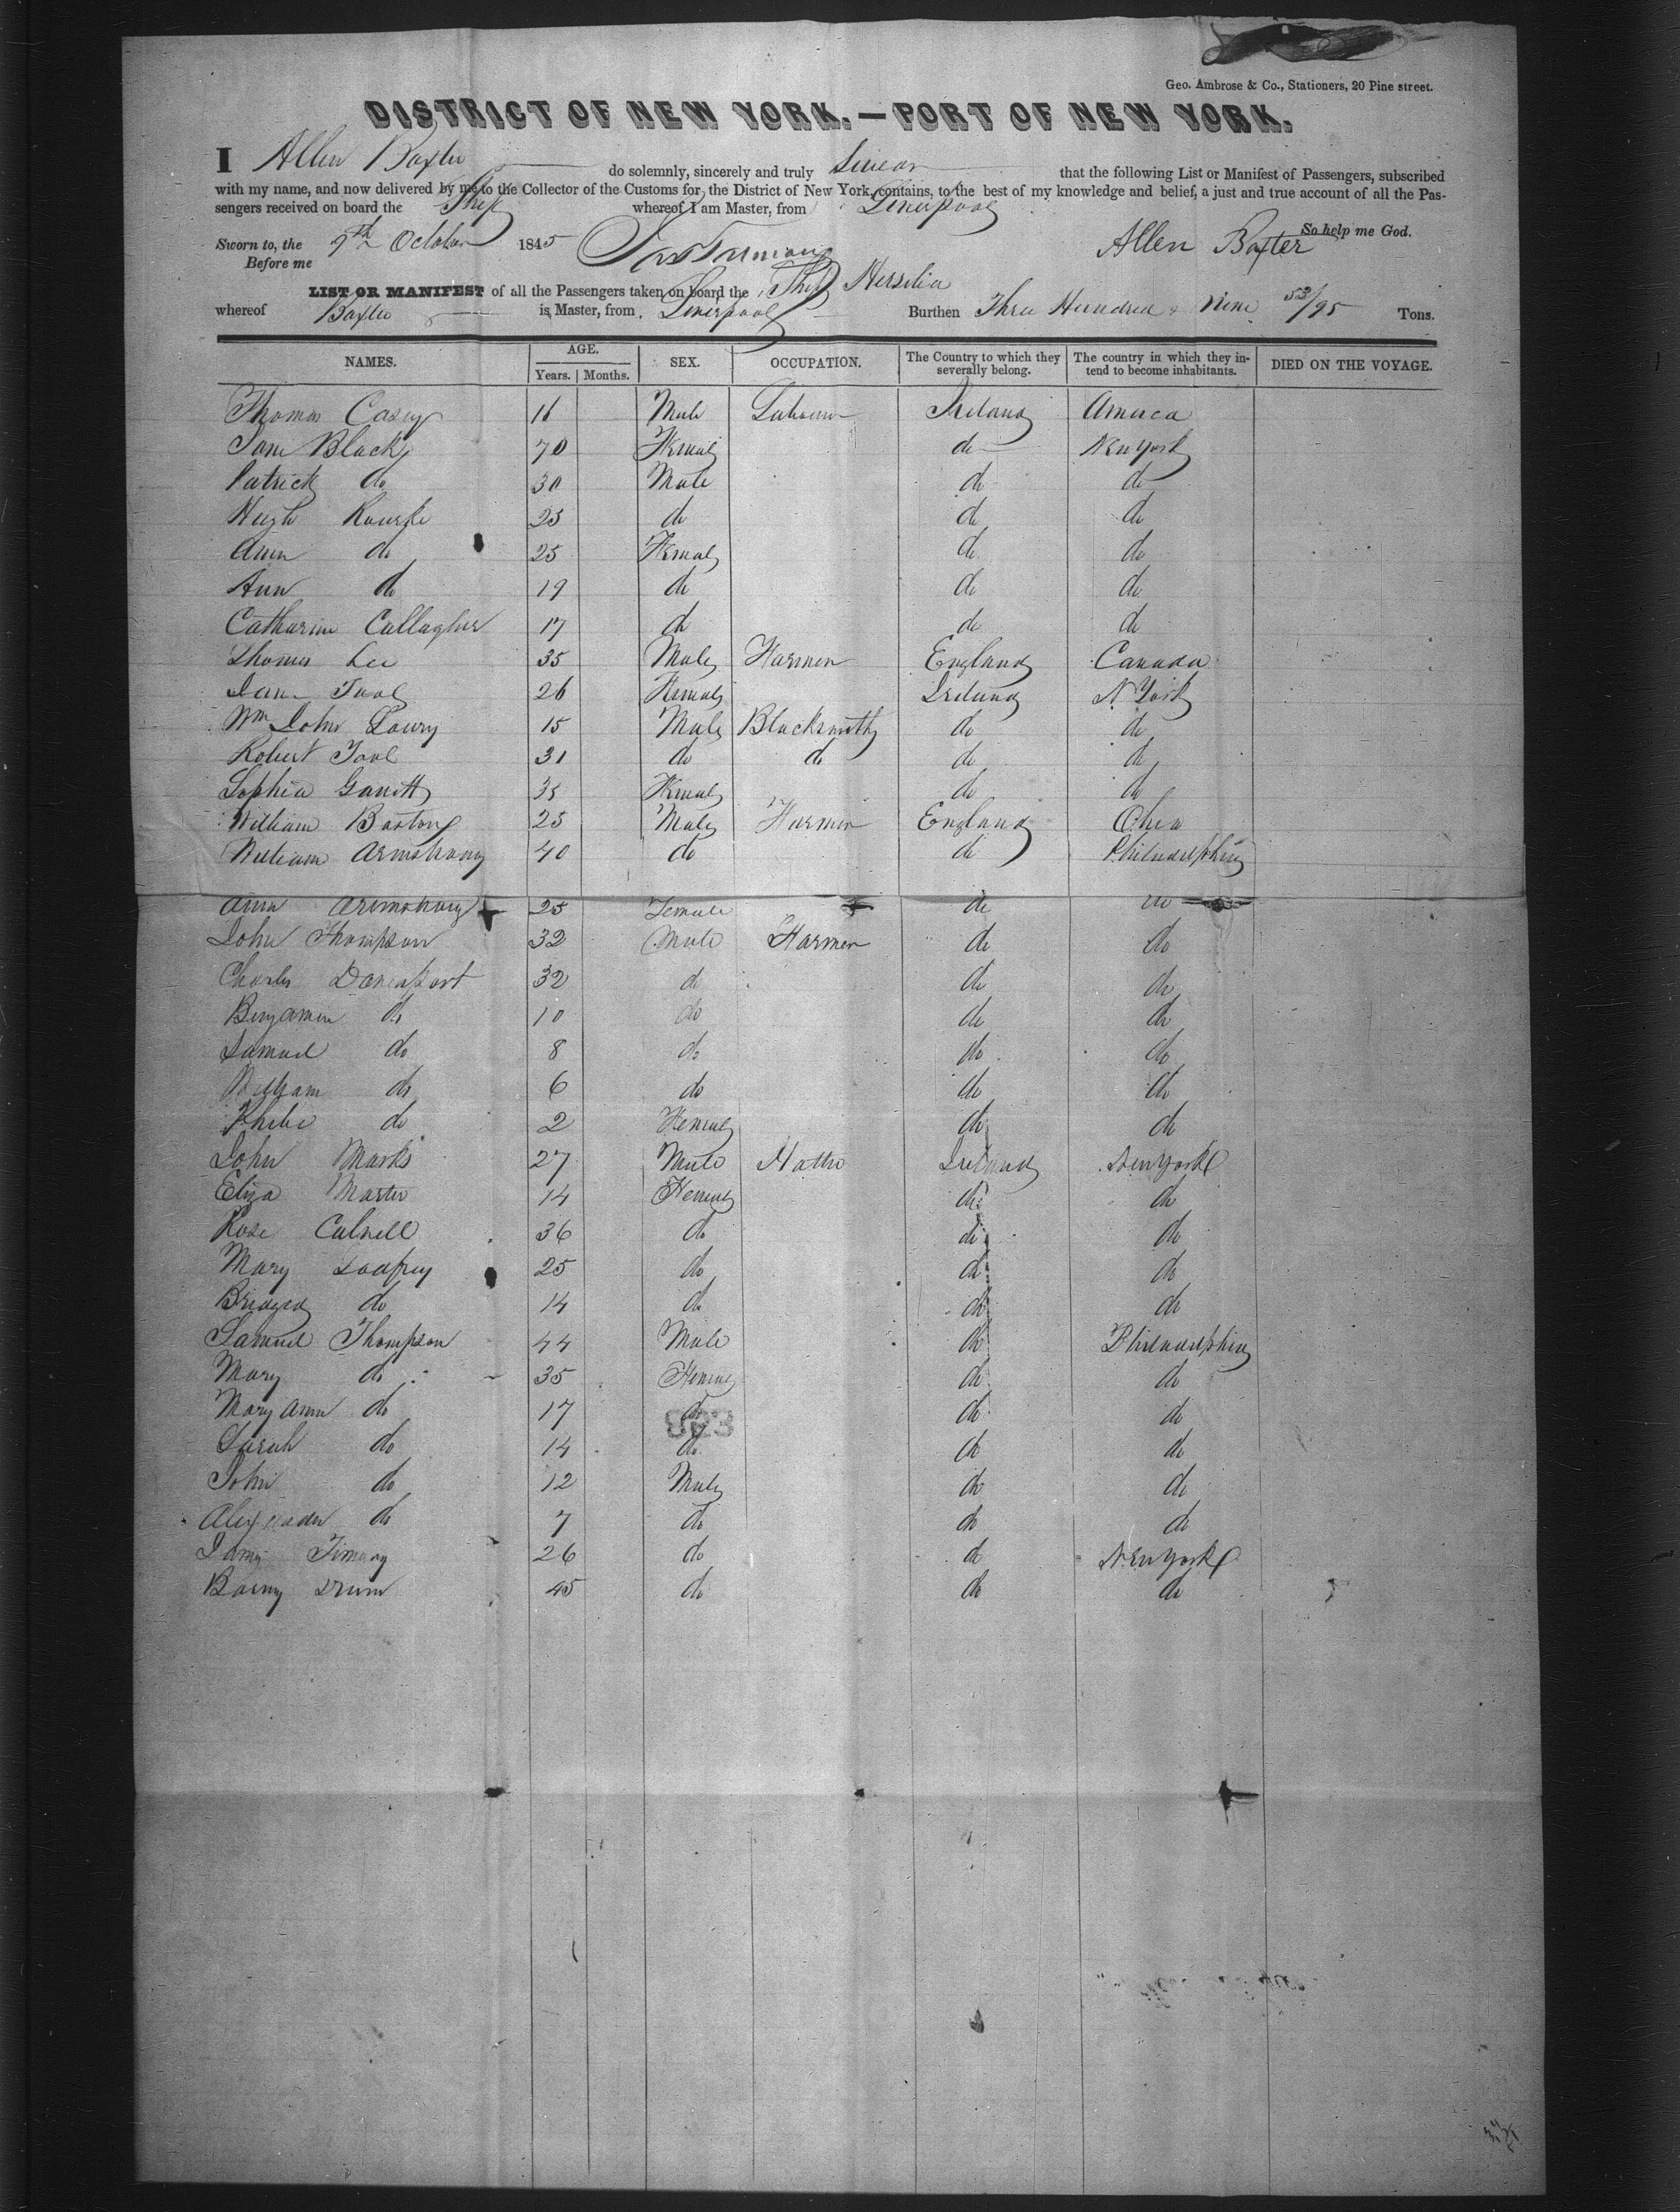 Geo. Ambrose & Co., Stationers, 20 Pine street.
DISTRICT OF NEW YORK.—PORT OF NEW YORK.
I Allen Baxter do solemnly, sincerely and truly Swear that the following List or Manifest of Passengers, subscribed
with my name, and now delivered by me to the Collector of the Customs for the District of New York, contains, to the best of my knowledge and belief, a just and true account of all the Pas-
sengers received on board the Ship whereof I am Master, from Liverpool
So help me God.
Sworn to, the 9th October 1845 Allen Baxter
Before me
LIST OR MANIFEST of all the Passengers taken on board the Ship Hersilia
whereof Baxter is Master, from Liverpool Burthen Three Hundred & Nine 53/95 Tons.
NAMES. AGE. Years. Months. SEX. OCCUPATION. The Country to which they severally belong. The country in which they intend to become inhabitants. DIED ON THE VOYAGE.
Thomas Casey 16 Male Labourer Ireland America
Jane Black 70 Female do New York
Patrick do 30 Male do do
Hugh Rourke 25 do do do
Ann do 25 Female do do
Ann do 19 do do do
Catharine Callagher 17 do do do
Thomas Lee 35 Male Farmer England Canada
Jane Tool 26 Female Ireland N York
Wm John Lowry 15 Male Blacksmith do do
Robert Tool 31 do do do do
Sophia 35 Female do do
William Barton 25 Male Farmer England Ohio
William Armstrong 40 do do Philadelphia
Ann Armstrong 25 Female do do
John Thompson 32 Male Farmer do do
Charles Davenport 32 do do do
Benjamin do 10 do do do
Samuel do 8 do do do
William do 6 do do do
Phebe do 2 Female do do
John Marks 27 Male Hatter Ireland New York
Eliza Martin 14 Female do do
Rose 36 do do do
Mary Godfrey 25 do do do
Bridged do 14 do do do
Samuel Thompson 44 Male do Philadelphia
Mary do 35 Female do do
Mary Ann do 17 do do do
823
Sarah do 14 do do do
John do 12 Male do do
Alexander do 7 do do do
James 26 do do New York
Barny Drum 45 do do do